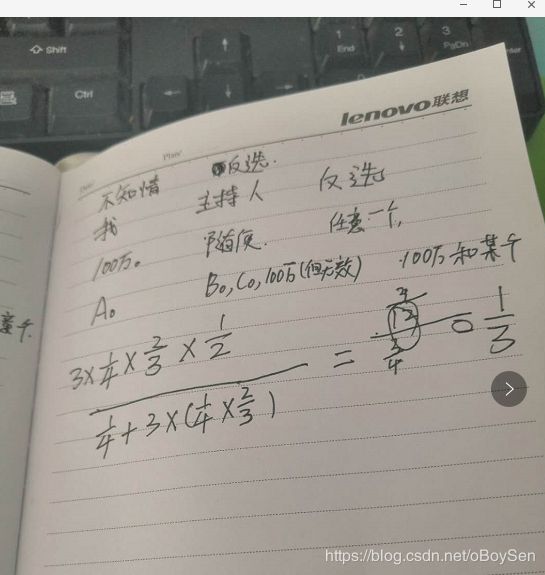 Shift
Ctrl
1
End
2
3
PgDn
lenovo联想
不知情 反选.
我 主持人 反选
100万。 随便. 任意一个,
A。 B。,C。,100万(但无数) 100万和某个
3×1/4×2/3×1/2
1/4+3×(1/4×2/3)
=
3/4
1/3
https://blog.csdn.net/oBoySen